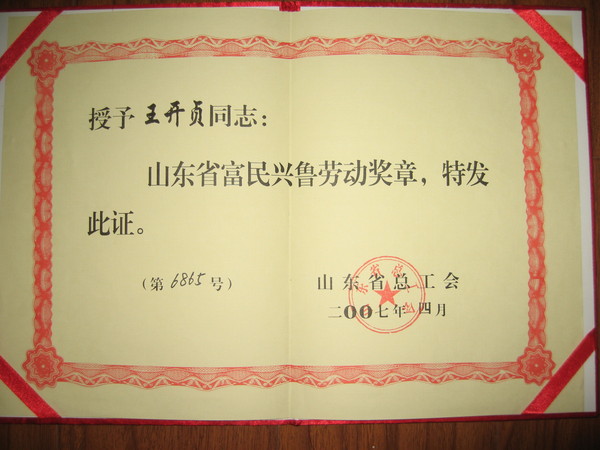 授予王开贞同志：
山东省富民兴鲁劳动奖章，特发
此证。
（第6865号）
山东省总工会
二〇〇七年四月